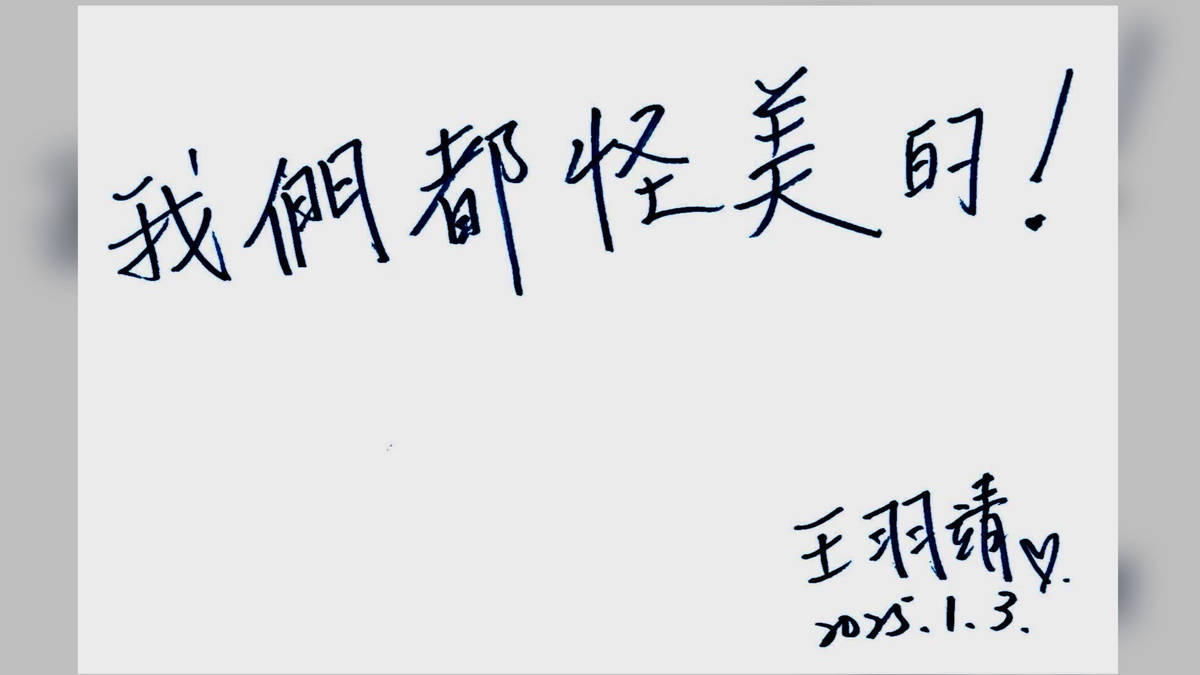 我們都怪美的!
王羽靖♡.
2025.1.3.